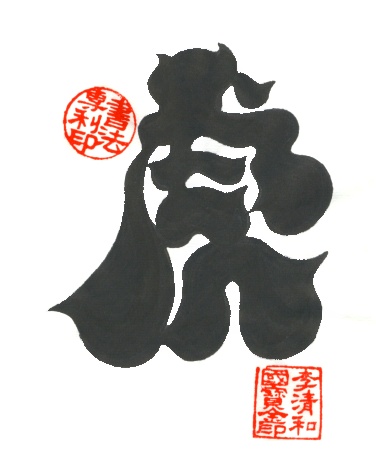 虎
書法
專利印
李清和
國寶金印